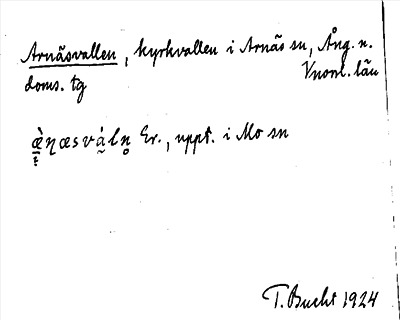 Arnäsvallen, kyrkvallen i Arnäs sn, Ång. n.
doms. tg Vnorrl. län
Er., uppt. i Mo sn
T. Bucht 1924